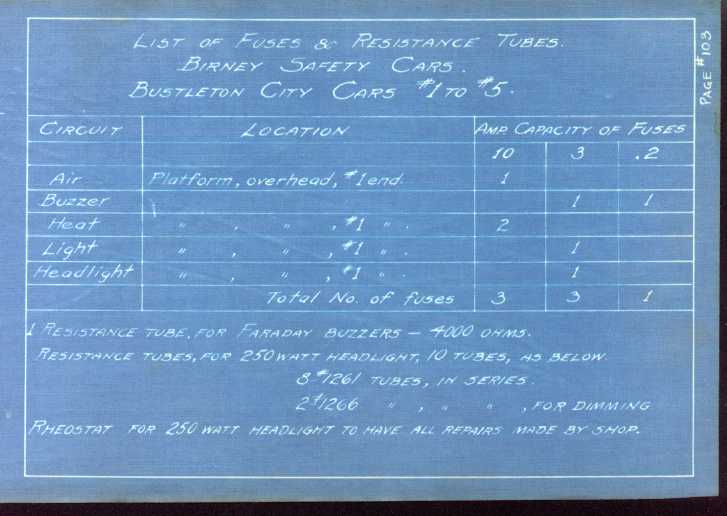 PAGE #103
LIST OF FUSES & RESISTANCE TUBES.
BIRNEY SAFETY CARS.
BUSTLETON CITY CARS #1 TO #5.
CIRCUIT LOCATION AMP. CAPACITY OF FUSES
10 3 .2
Air Platform, overhead, #1 end. 1
Buzzer 1 1
Heat " , " , #1 " . 2
Light " , " , #1 " . 1
Headlight " , " , #1 " . 1
Total No. of fuses 3 3 1
1 RESISTANCE TUBE, FOR FARADAY BUZZERS – 4000 OHMS.
RESISTANCE TUBES, FOR 250 WATT HEADLIGHT, 10 TUBES, AS BELOW.
8 #1261 TUBES, IN SERIES.
2 #1266 " , " " , FOR DIMMING
RHEOSTAT FOR 250 WATT HEADLIGHT TO HAVE ALL REPAIRS MADE BY SHOP.